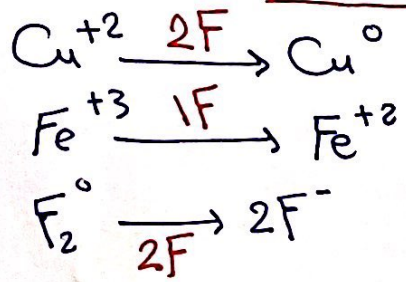 Cu⁺² 2F → Cu⁰
Fe⁺³ 1F → Fe⁺²
F₂⁰ 2F → 2F⁻